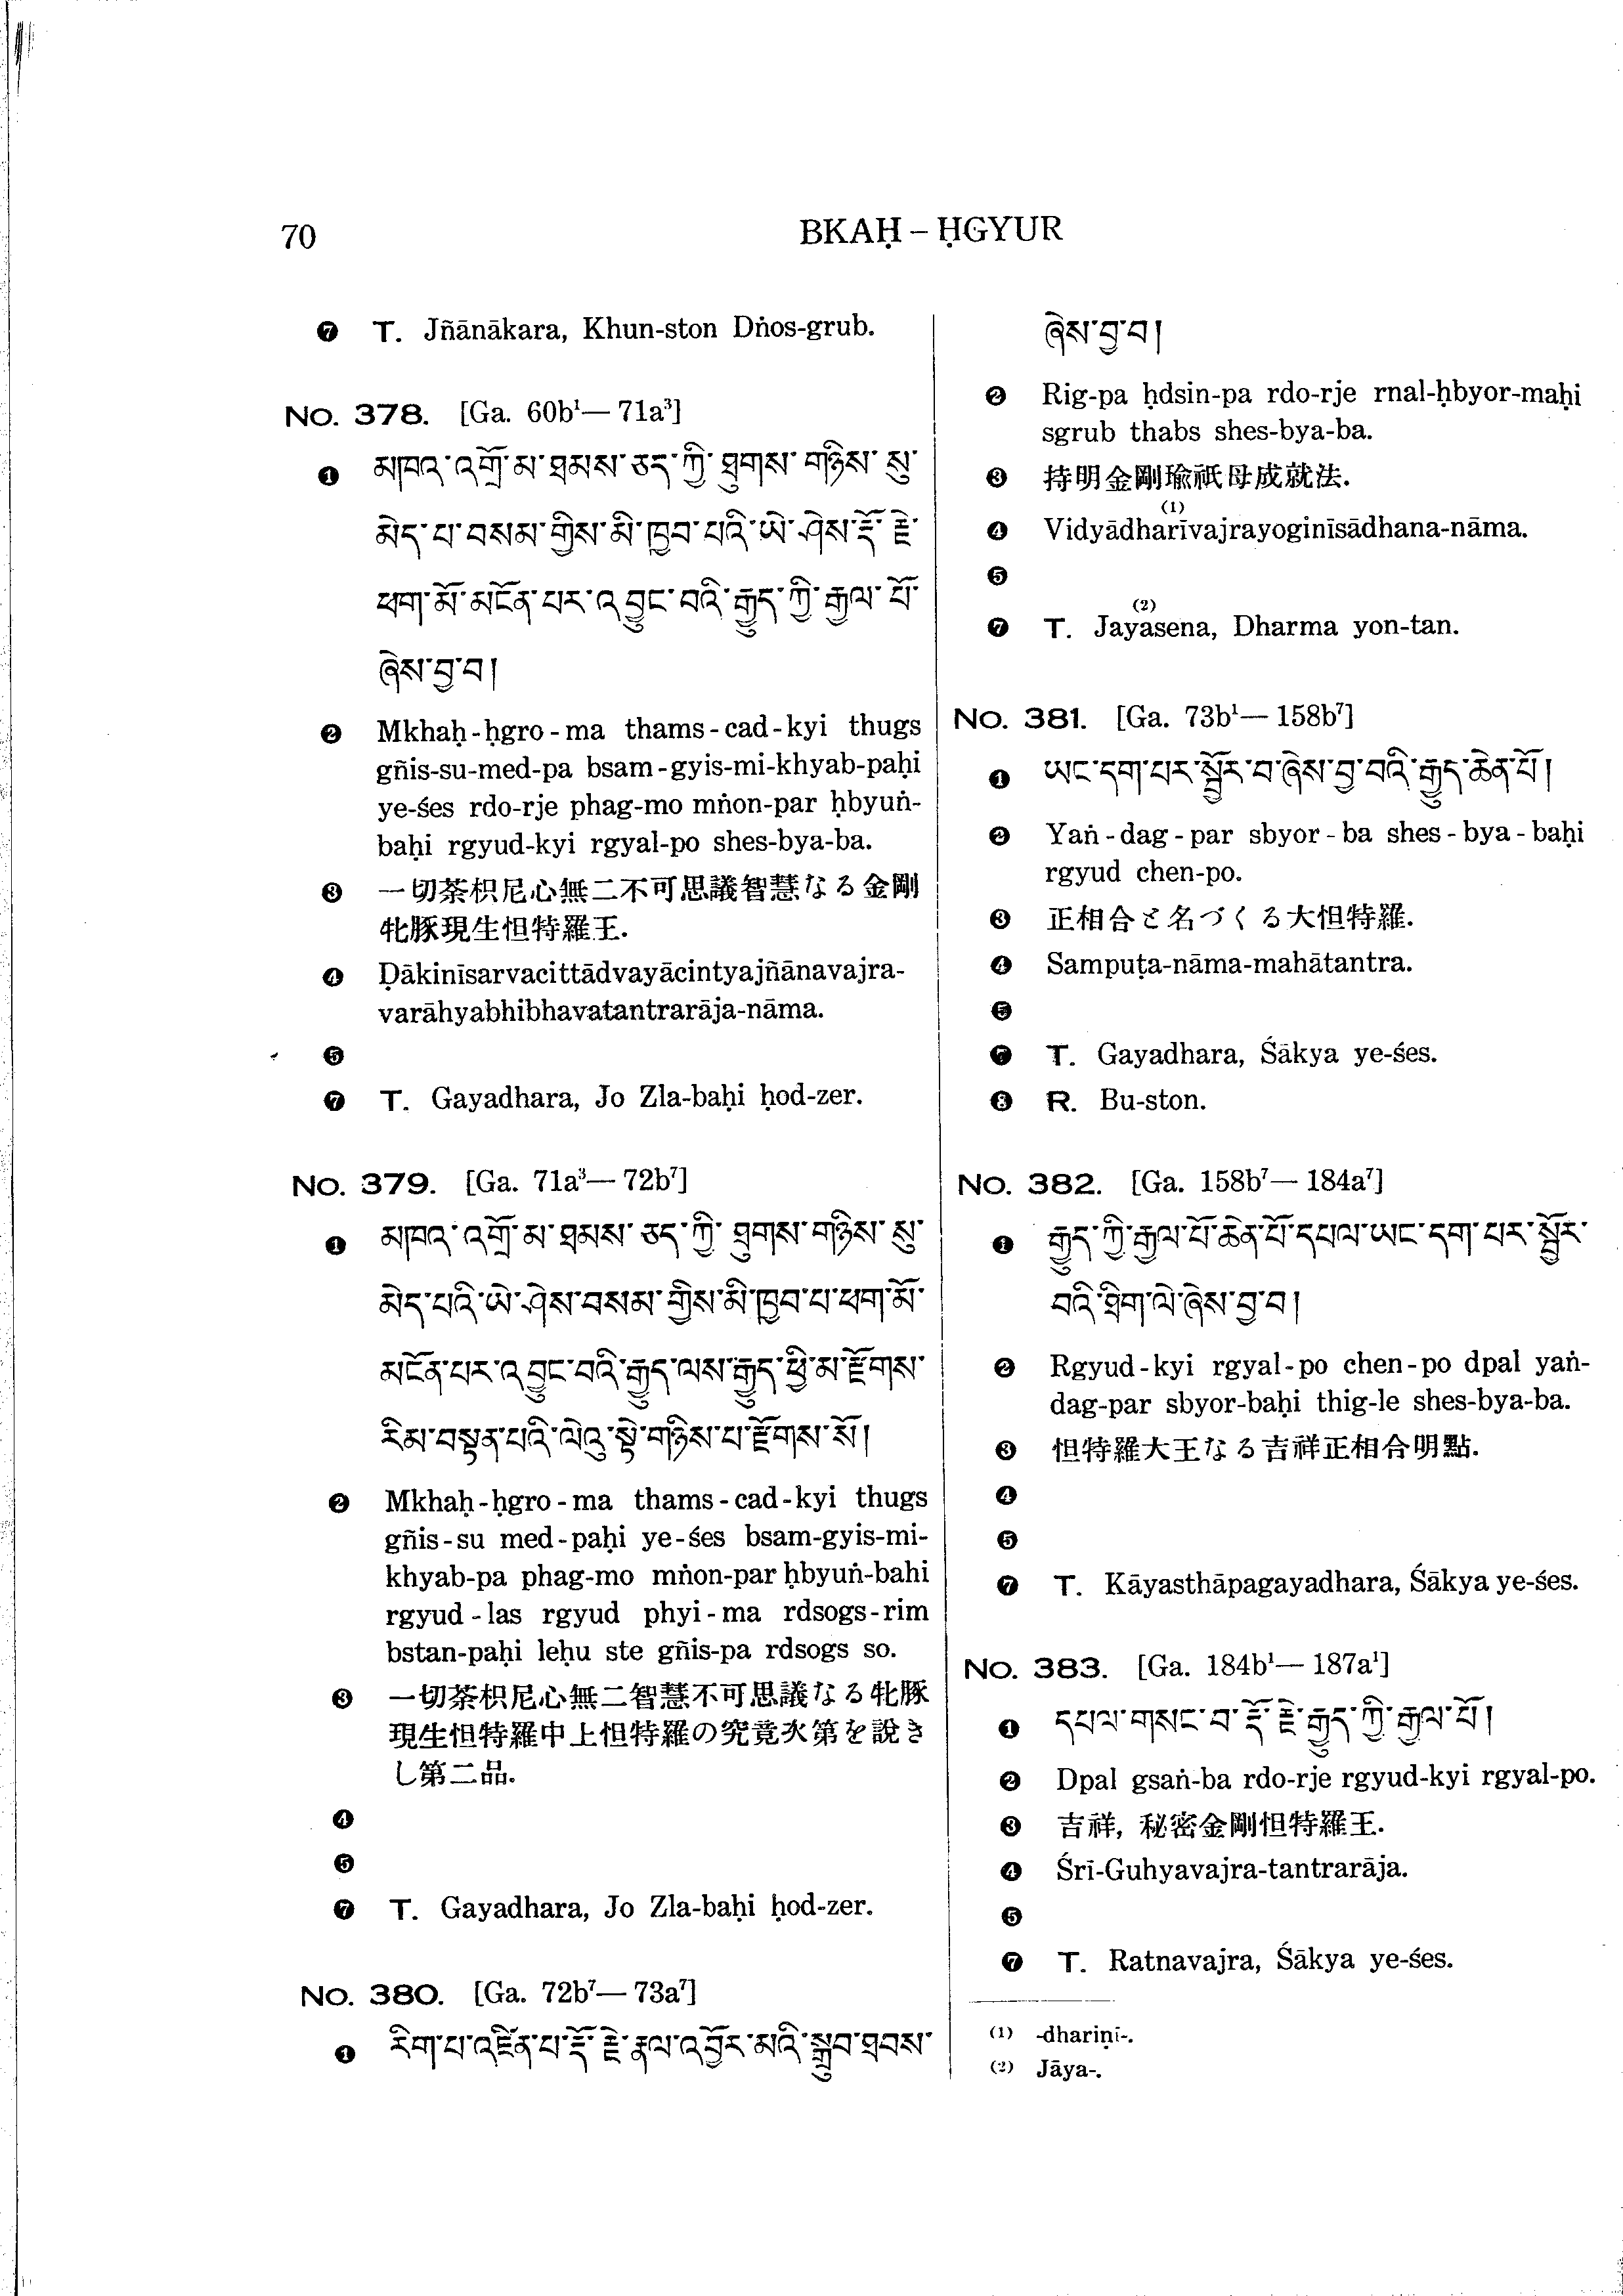 70
BKAḤ – ḤGYUR
❼ T. Jñānākara, Khun-ston Dṅos-grub.
No. 378. [Ga. 60b¹— 71a³]
❶ མཁའ་འགྲོ་མ་ཐམས་ཅད་ཀྱི་ཐུགས་གཉིས་སུ་
མེད་པ་བསམ་གྱིས་མི་ཁྱབ་པའི་ཡེ་ཤེས་རྡོ་རྗེ་
ཕག་མོ་མངོན་པར་འབྱུང་བའི་རྒྱུད་ཀྱི་རྒྱལ་པོ་
ཞེས་བྱ་བ།
❷ Mkhaḥ-ḥgro-ma thams-cad-kyi thugs
gñis-su-med-pa bsam-gyis-mi-khyab-paḥi
ye-śes rdo-rje phag-mo mṅon-par ḥbyuṅ-
baḥi rgyud-kyi rgyal-po shes-bya-ba.
❸ 一切茶枳尼心無二不可思議智慧なる金剛
牝豚現生怛特羅王.
❹ Ḍākinīsarvacittādvayācintyajñānavajra-
varāhyabhibhavatantrarāja-nāma.
❺
❼ T. Gayadhara, Jo Zla-baḥi ḥod-zer.
No. 379. [Ga. 71a³— 72b⁷]
❶ མཁའ་འགྲོ་མ་ཐམས་ཅད་ཀྱི་ཐུགས་གཉིས་སུ་
མེད་པའི་ཡེ་ཤེས་བསམ་གྱིས་མི་ཁྱབ་པ་ཕག་མོ་
མངོན་པར་འབྱུང་བའི་རྒྱུད་ལས་རྒྱུད་ཕྱི་མ་རྫོགས་
རིམ་བསྟན་པའི་ལེའུ་སྟེ་གཉིས་པ་རྫོགས་སོ།
❷ Mkhaḥ-ḥgro-ma thams-cad-kyi thugs
gñis-su med-paḥi ye-śes bsam-gyis-mi-
khyab-pa phag-mo mṅon-par ḥbyuṅ-bahi
rgyud-las rgyud phyi-ma rdsogs-rim
bstan-paḥi leḥu ste gñis-pa rdsogs so.
❸ 一切茶枳尼心無二智慧不可思議なる牝豚
現生怛特羅中上怛特羅の究竟次第を說き
し第二品.
❹
❺
❼ T. Gayadhara, Jo Zla-baḥi ḥod-zer.
No. 380. [Ga. 72b⁷— 73a⁷]
❶ རིག་པ་འཛིན་པ་རྡོ་རྗེ་རྣལ་འབྱོར་མའི་སྒྲུབ་ཐབས་
ཞེས་བྱ་བ།
❷ Rig-pa ḥdsin-pa rdo-rje rnal-ḥbyor-maḥi
sgrub thabs shes-bya-ba.
❸ 持明金剛瑜祇母成就法.
(1)
❹ Vidyādharīvajrayoginīsādhana-nāma.
❺
(2)
❼ T. Jayasena, Dharma yon-tan.
No. 381. [Ga. 73b¹— 158b⁷]
❶ ཡང་དག་པར་སྦྱོར་བ་ཞེས་བྱ་བའི་རྒྱུད་ཆེན་པོ།
❷ Yaṅ-dag-par sbyor-ba shes-bya-baḥi
rgyud chen-po.
❸ 正相合と名づくる大怛特羅.
❹ Sampuṭa-nāma-mahātantra.
❺
❼ T. Gayadhara, Śākya ye-śes.
❽ R. Bu-ston.
No. 382. [Ga. 158b⁷— 184a⁷]
❶ རྒྱུད་ཀྱི་རྒྱལ་པོ་ཆེན་པོ་དཔལ་ཡང་དག་པར་སྦྱོར་
བའི་ཐིག་ལེ་ཞེས་བྱ་བ།
❷ Rgyud-kyi rgyal-po chen-po dpal yaṅ-
dag-par sbyor-baḥi thig-le shes-bya-ba.
❸ 怛特羅大王なる吉祥正相合明點.
❹
❺
❼ T. Kāyasthāpagayadhara, Śākya ye-śes.
No. 383. [Ga. 184b¹— 187a¹]
❶ དཔལ་གསང་བ་རྡོ་རྗེ་རྒྱུད་ཀྱི་རྒྱལ་པོ།
❷ Dpal gsaṅ-ba rdo-rje rgyud-kyi rgyal-po.
❸ 吉祥, 秘密金剛怛特羅王.
❹ Śrī-Guhyavajra-tantrarāja.
❺
❼ T. Ratnavajra, Śākya ye-śes.
(1) -dhariṇī-.
(2) Jāya-.